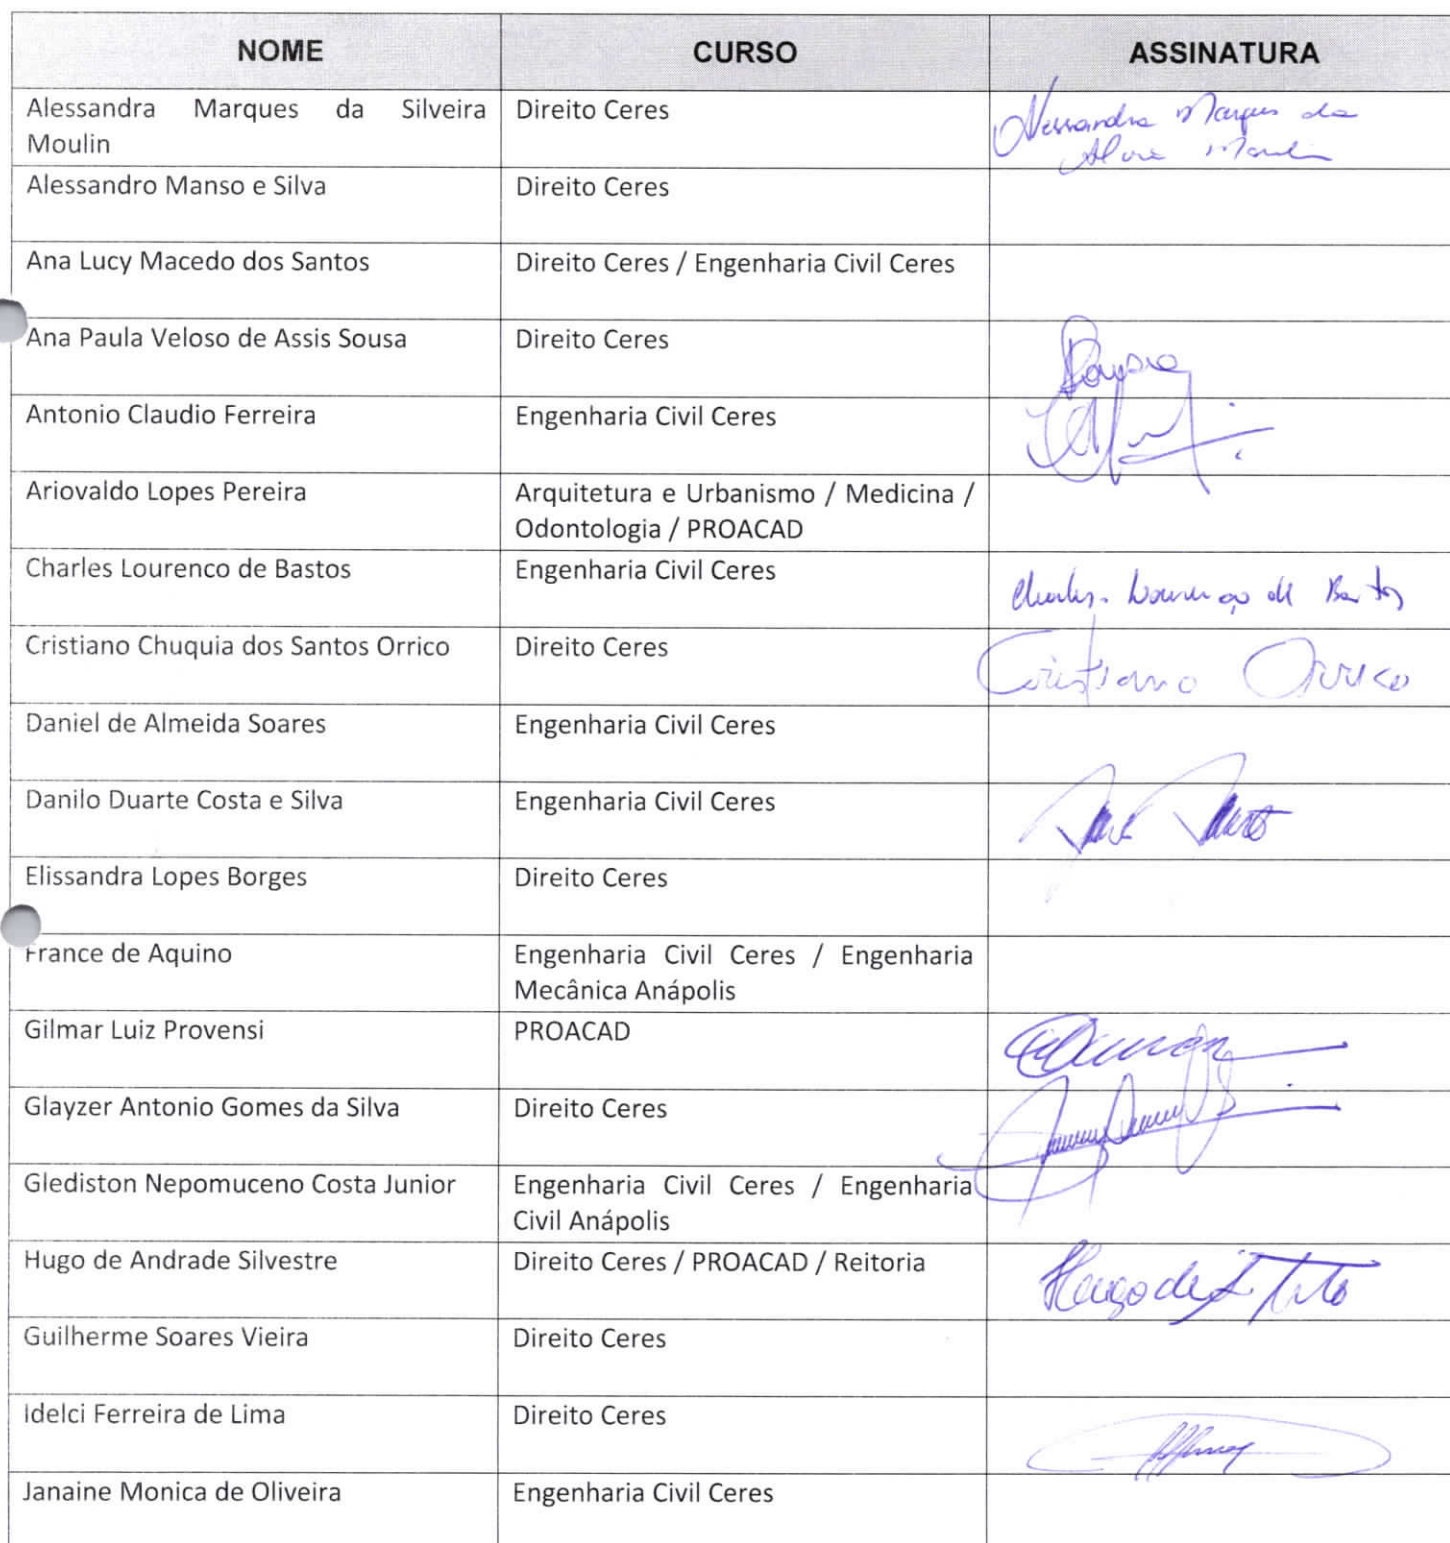 NOME CURSO ASSINATURA
Alessandra Marques da Silveira Direito Ceres Alessandra Marques da
Moulin Moulin
Alessandro Manso e Silva Direito Ceres
Ana Lucy Macedo dos Santos Direito Ceres / Engenharia Civil Ceres
Ana Paula Veloso de Assis Sousa Direito Ceres
Antonio Claudio Ferreira Engenharia Civil Ceres
Ariovaldo Lopes Pereira Arquitetura e Urbanismo / Medicina /
Odontologia / PROACAD
Charles Lourenco de Bastos Engenharia Civil Ceres Charles Lourenço de Bastos
Cristiano Chuquia dos Santos Orrico Direito Ceres Cristiano Orrico
Daniel de Almeida Soares Engenharia Civil Ceres
Danilo Duarte Costa e Silva Engenharia Civil Ceres
Elissandra Lopes Borges Direito Ceres
France de Aquino Engenharia Civil Ceres / Engenharia
Mecânica Anápolis
Gilmar Luiz Provensi PROACAD
Glayzer Antonio Gomes da Silva Direito Ceres
Glediston Nepomuceno Costa Junior Engenharia Civil Ceres / Engenharia
Civil Anápolis
Hugo de Andrade Silvestre Direito Ceres / PROACAD / Reitoria Hugo de
Guilherme Soares Vieira Direito Ceres
Idelci Ferreira de Lima Direito Ceres
Janaine Monica de Oliveira Engenharia Civil Ceres